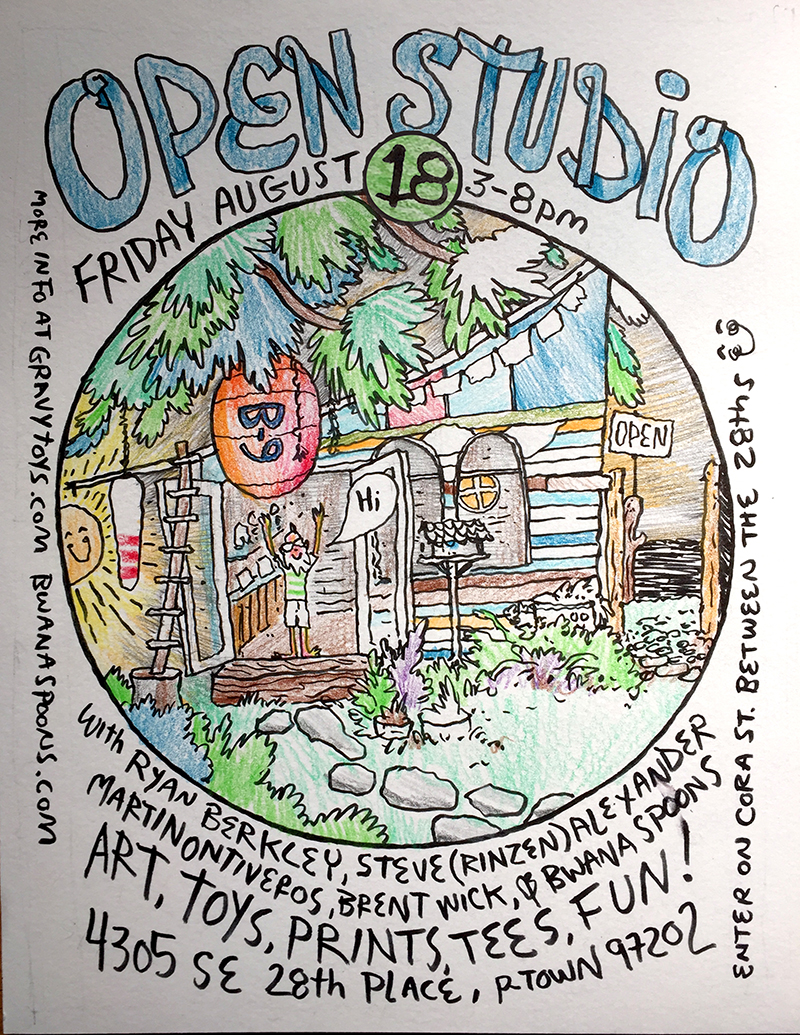 OPEN STUDIO
FRIDAY AUGUST 18 3-8pm
B-9
Hi
OPEN
With RYAN BERKLEY, STEVE (RINZEN) ALEXANDER
MARTIN ONTIVEROS, BRENT WICK, & BWANA SPOONS
ART, TOYS, PRINTS, TEES, FUN!
4305 SE 28th PLACE, P-TOWN 97202
MORE INFO AT GRAVYTOYS.COM BWANASPOONS.COM
ENTER ON CORA ST. BETWEEN THE 28ths